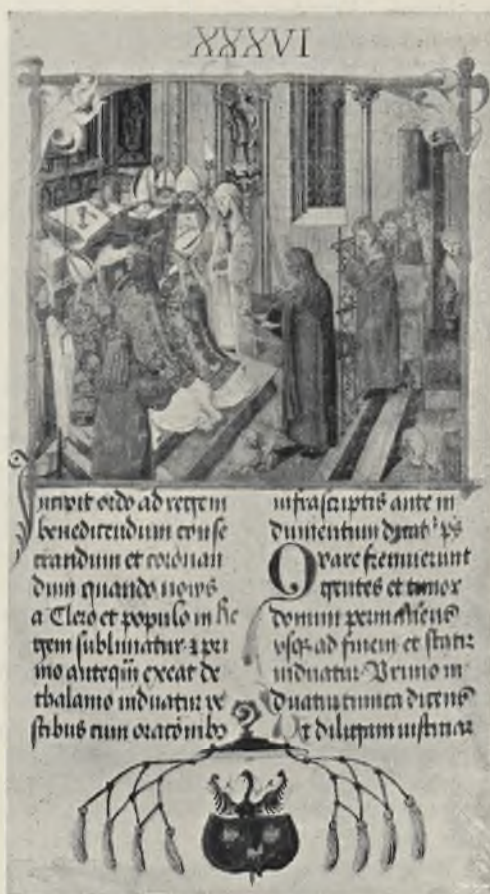 XXXVI
Incipit ordo ad regem
benedicendum conse
crandum et coronan
dum quando novus
a Clero et populo in Re
gem sublimatur. et pri
mo anteqm exeat de
thalamo induatur ve
stibus cum oracoibs
infrascriptis ante in
dumentum dicat ps
Quare fremuerunt
gentes et timor
domini permanens
usq ad finem et statim
induatur Primo in
duatur tunica dicens
Ut diligam iustitiam